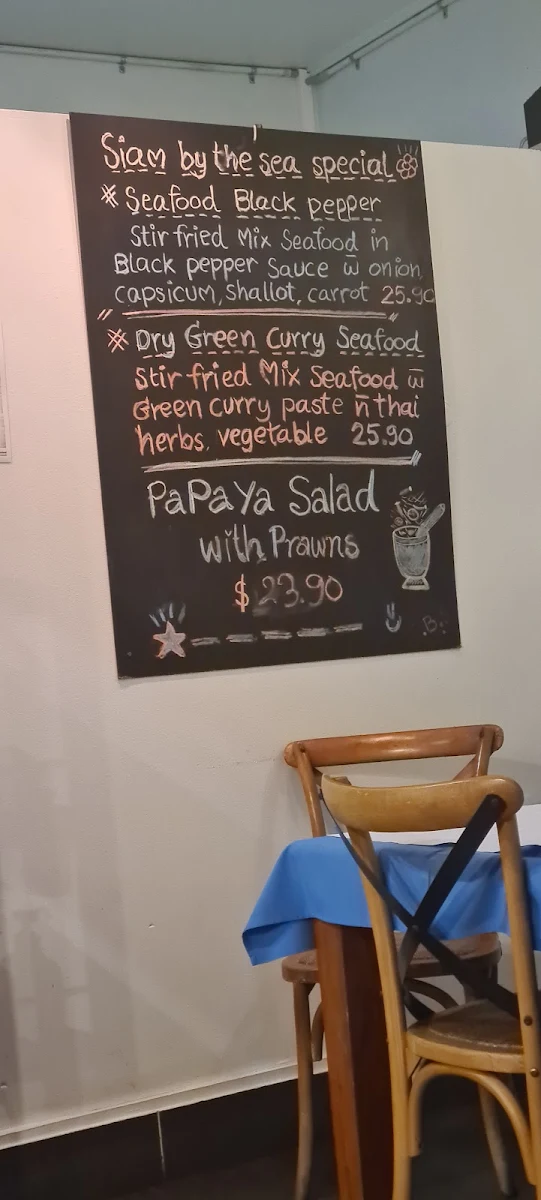 Siam by the sea special
* Seafood Black pepper
Stir fried Mix Seafood in
Black pepper Sauce w̄ onion
capsicum, shallot, carrot 25.90
* Dry Green Curry Seafood
Stir fried Mix Seafood w̄
Green curry paste n̄ thai
herbs, vegetable 25.90
PaPaYa Salad
with Prawns
$ 23.90
.B.